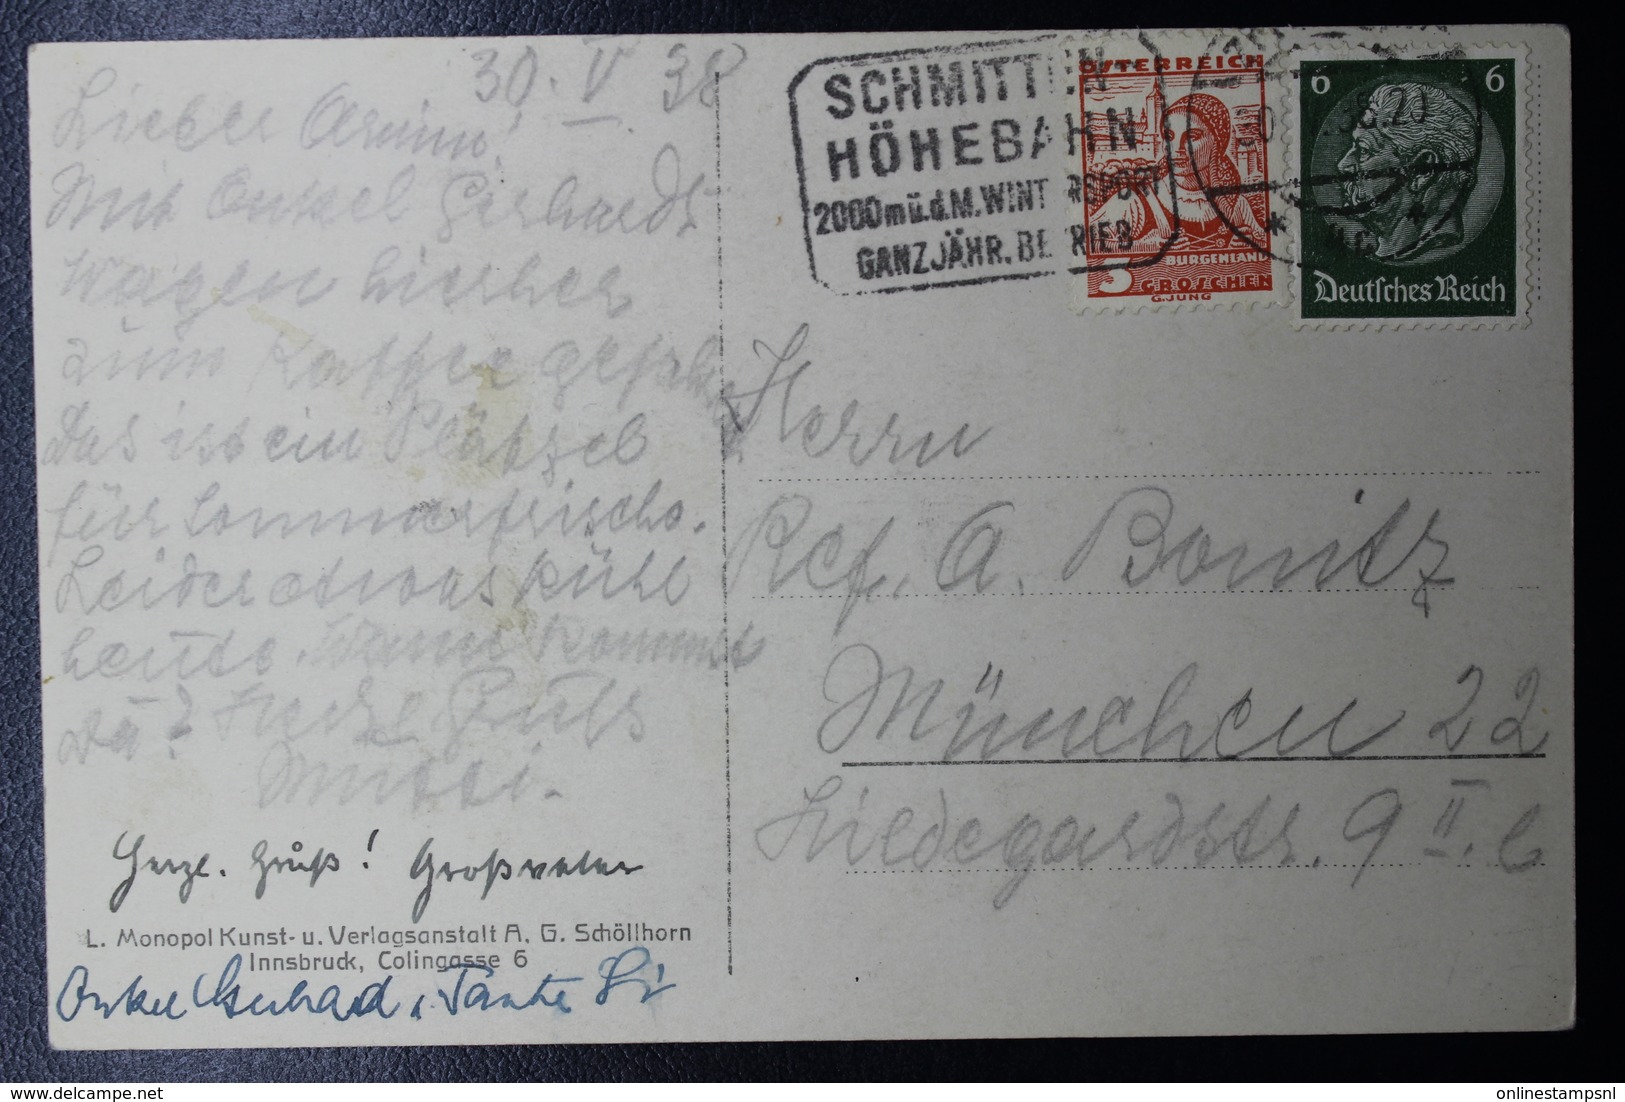 30. V. 38
Lieber Armin!
Mit Onkel Gerhards
Wagen hierher
zum Kaffee gefahren
Das ist ein Plätzel
für Sommerfrische.
Leider etwas kühl
heute. Wann kommst
du? Herzl. Gruß
Mutti.
Herzl. Gruß! Großvater
L. Monopol Kunst- u. Verlagsanstalt A. G. Schöllhorn
Innsbruck, Colingasse 6
Onkel Gerhard, Tante
SCHMITTEN
HÖHEBAHN
2000 m ü.d.M. WINTERSPORT
GANZJÄHR. BETRIEB
ÖSTERREICH
BURGENLAND
5 GROSCHEN
G. JUNG
6 6
Deutsches Reich
Herrn
Ref. A. Bonitz
München 22
Hildegardstr. 9 II. l
onlinestampsnl